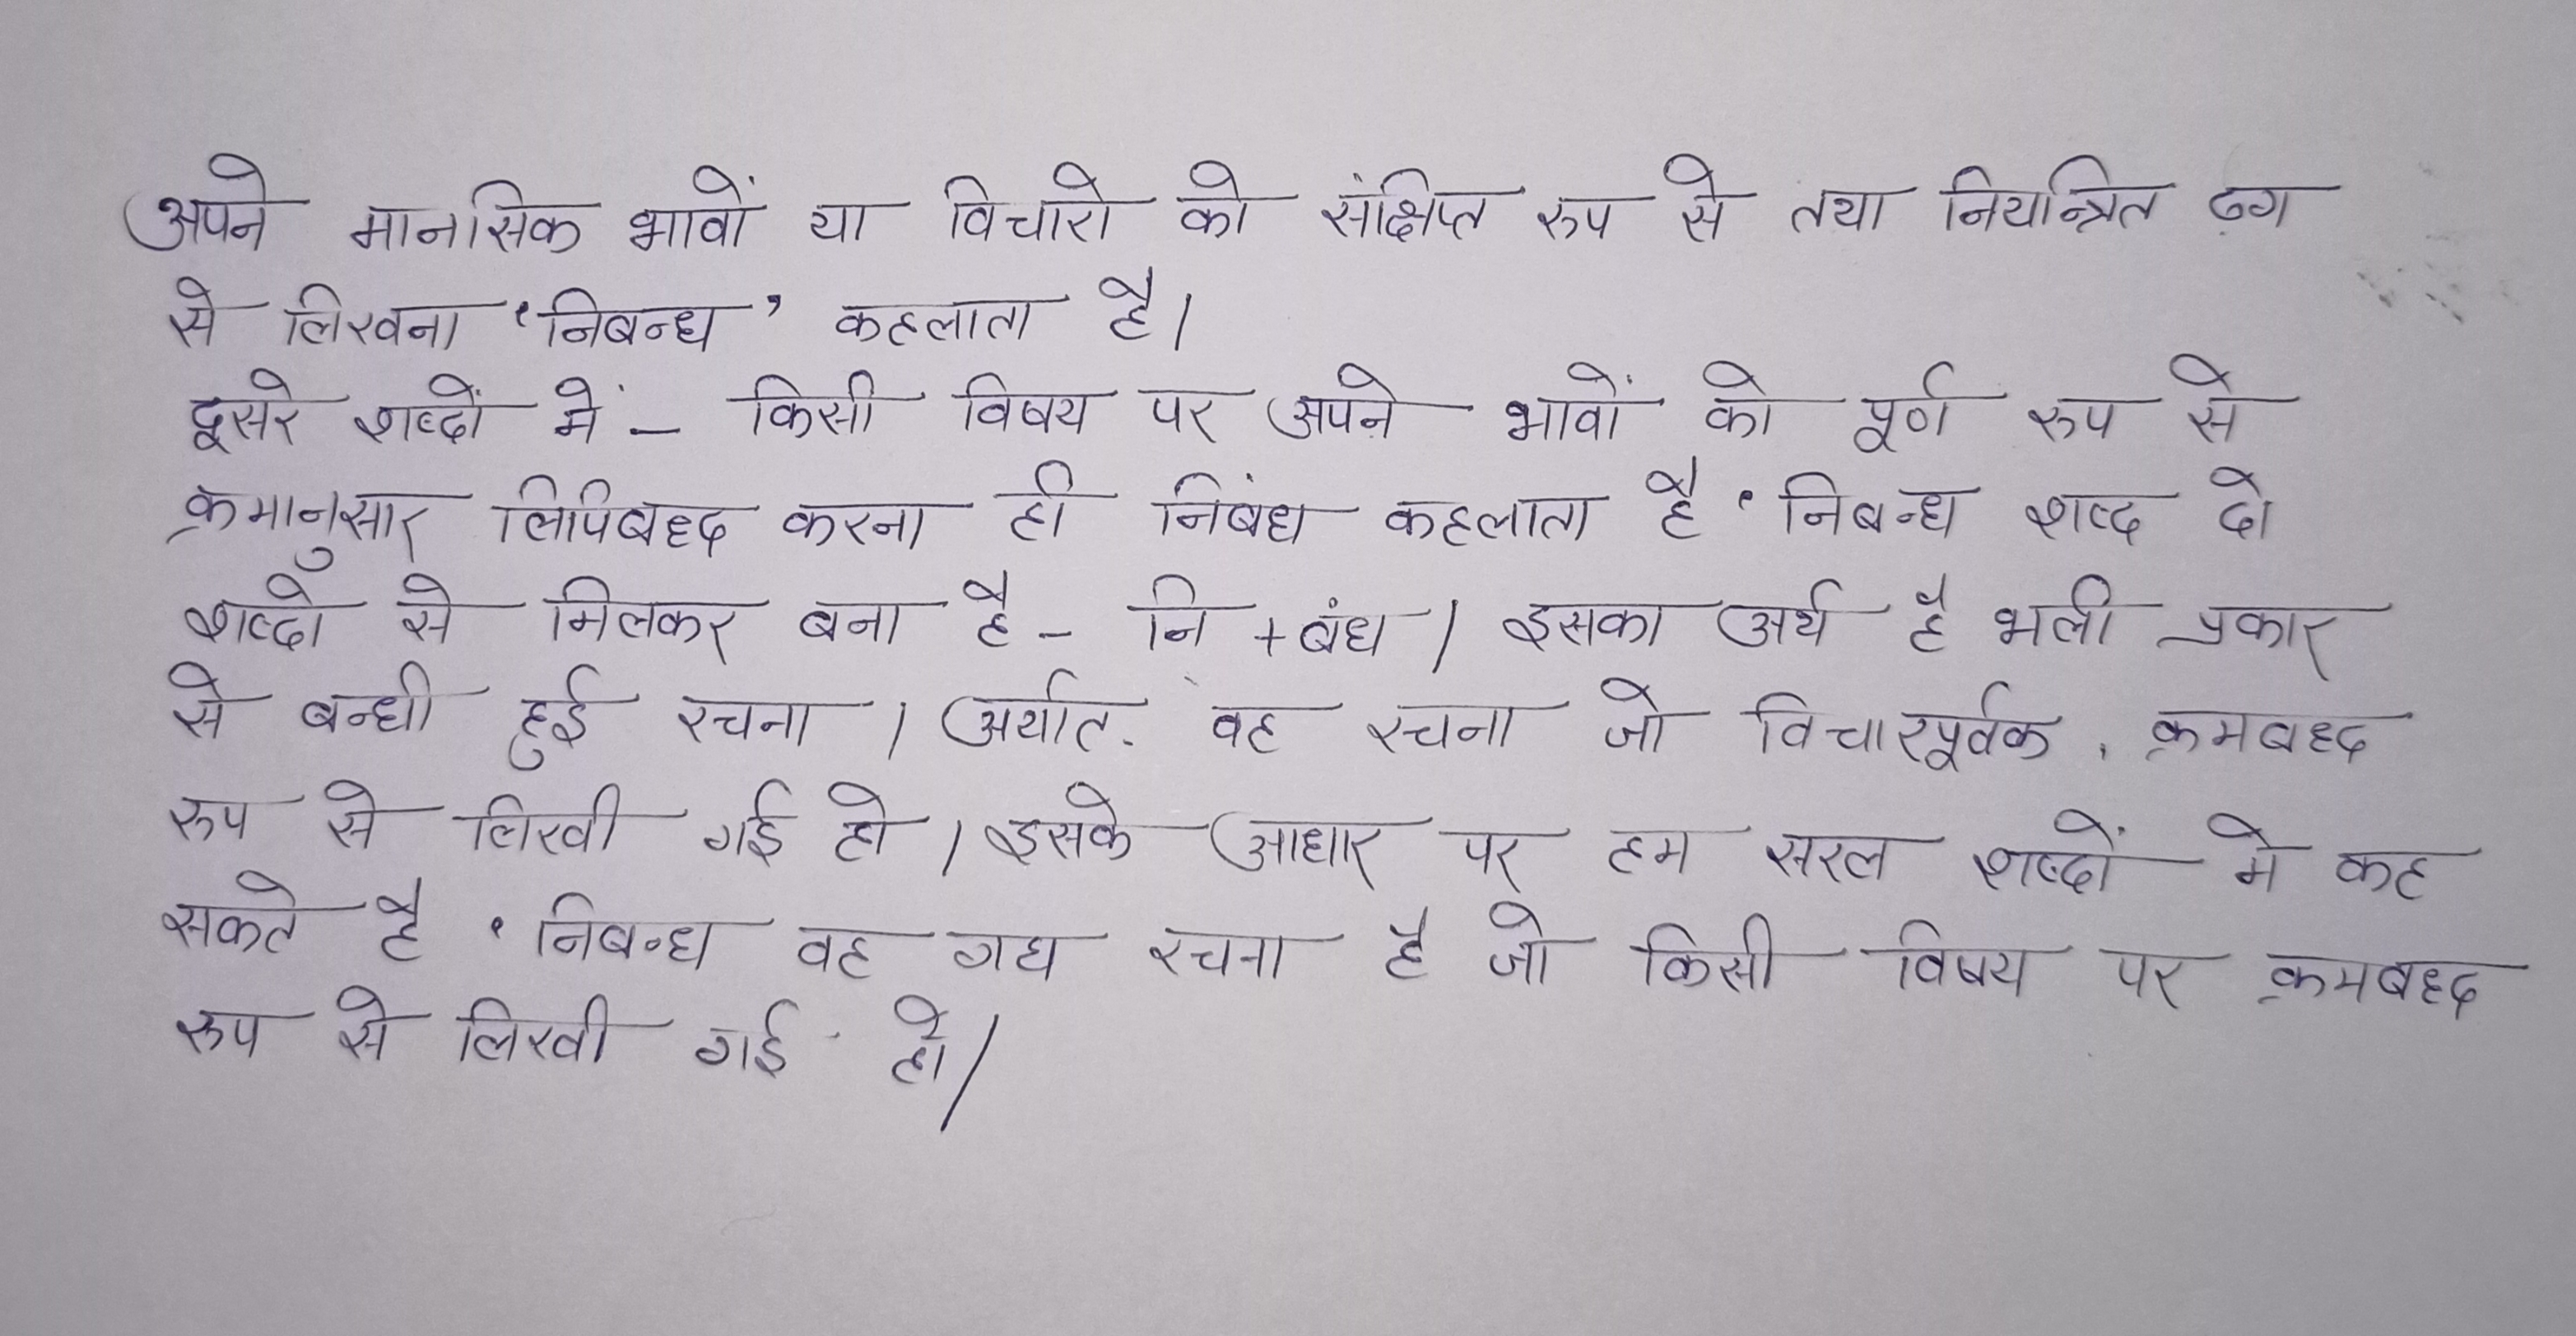 अपने मानसिक भावों या विचारो को संक्षिप्त रुप से तथा नियन्त्रित ढग
से लिखना ‘निबन्ध’ कहलाता है।
दूसरे शब्दों में - किसी विषय पर अपने भावों को पूर्ण रुप से
क्रमानुसार लिपिबध्द करना ही निबंध कहलाता है ‘निबन्ध शब्द दो
शब्दों से मिलकर बना है - नि + बंध । इसका अर्थ है भली प्रकार
से बन्धी हुई रचना । अर्थात. वह रचना जो विचारपूर्वक , क्रमबध्द
रुप से लिखी गई हो । इसके आधार पर हम सरल शब्दों मे कह
सकते है ‘निबन्ध वह गद्य रचना है जो किसी विषय पर क्रमबध्द
रुप से लिखी गई हो।